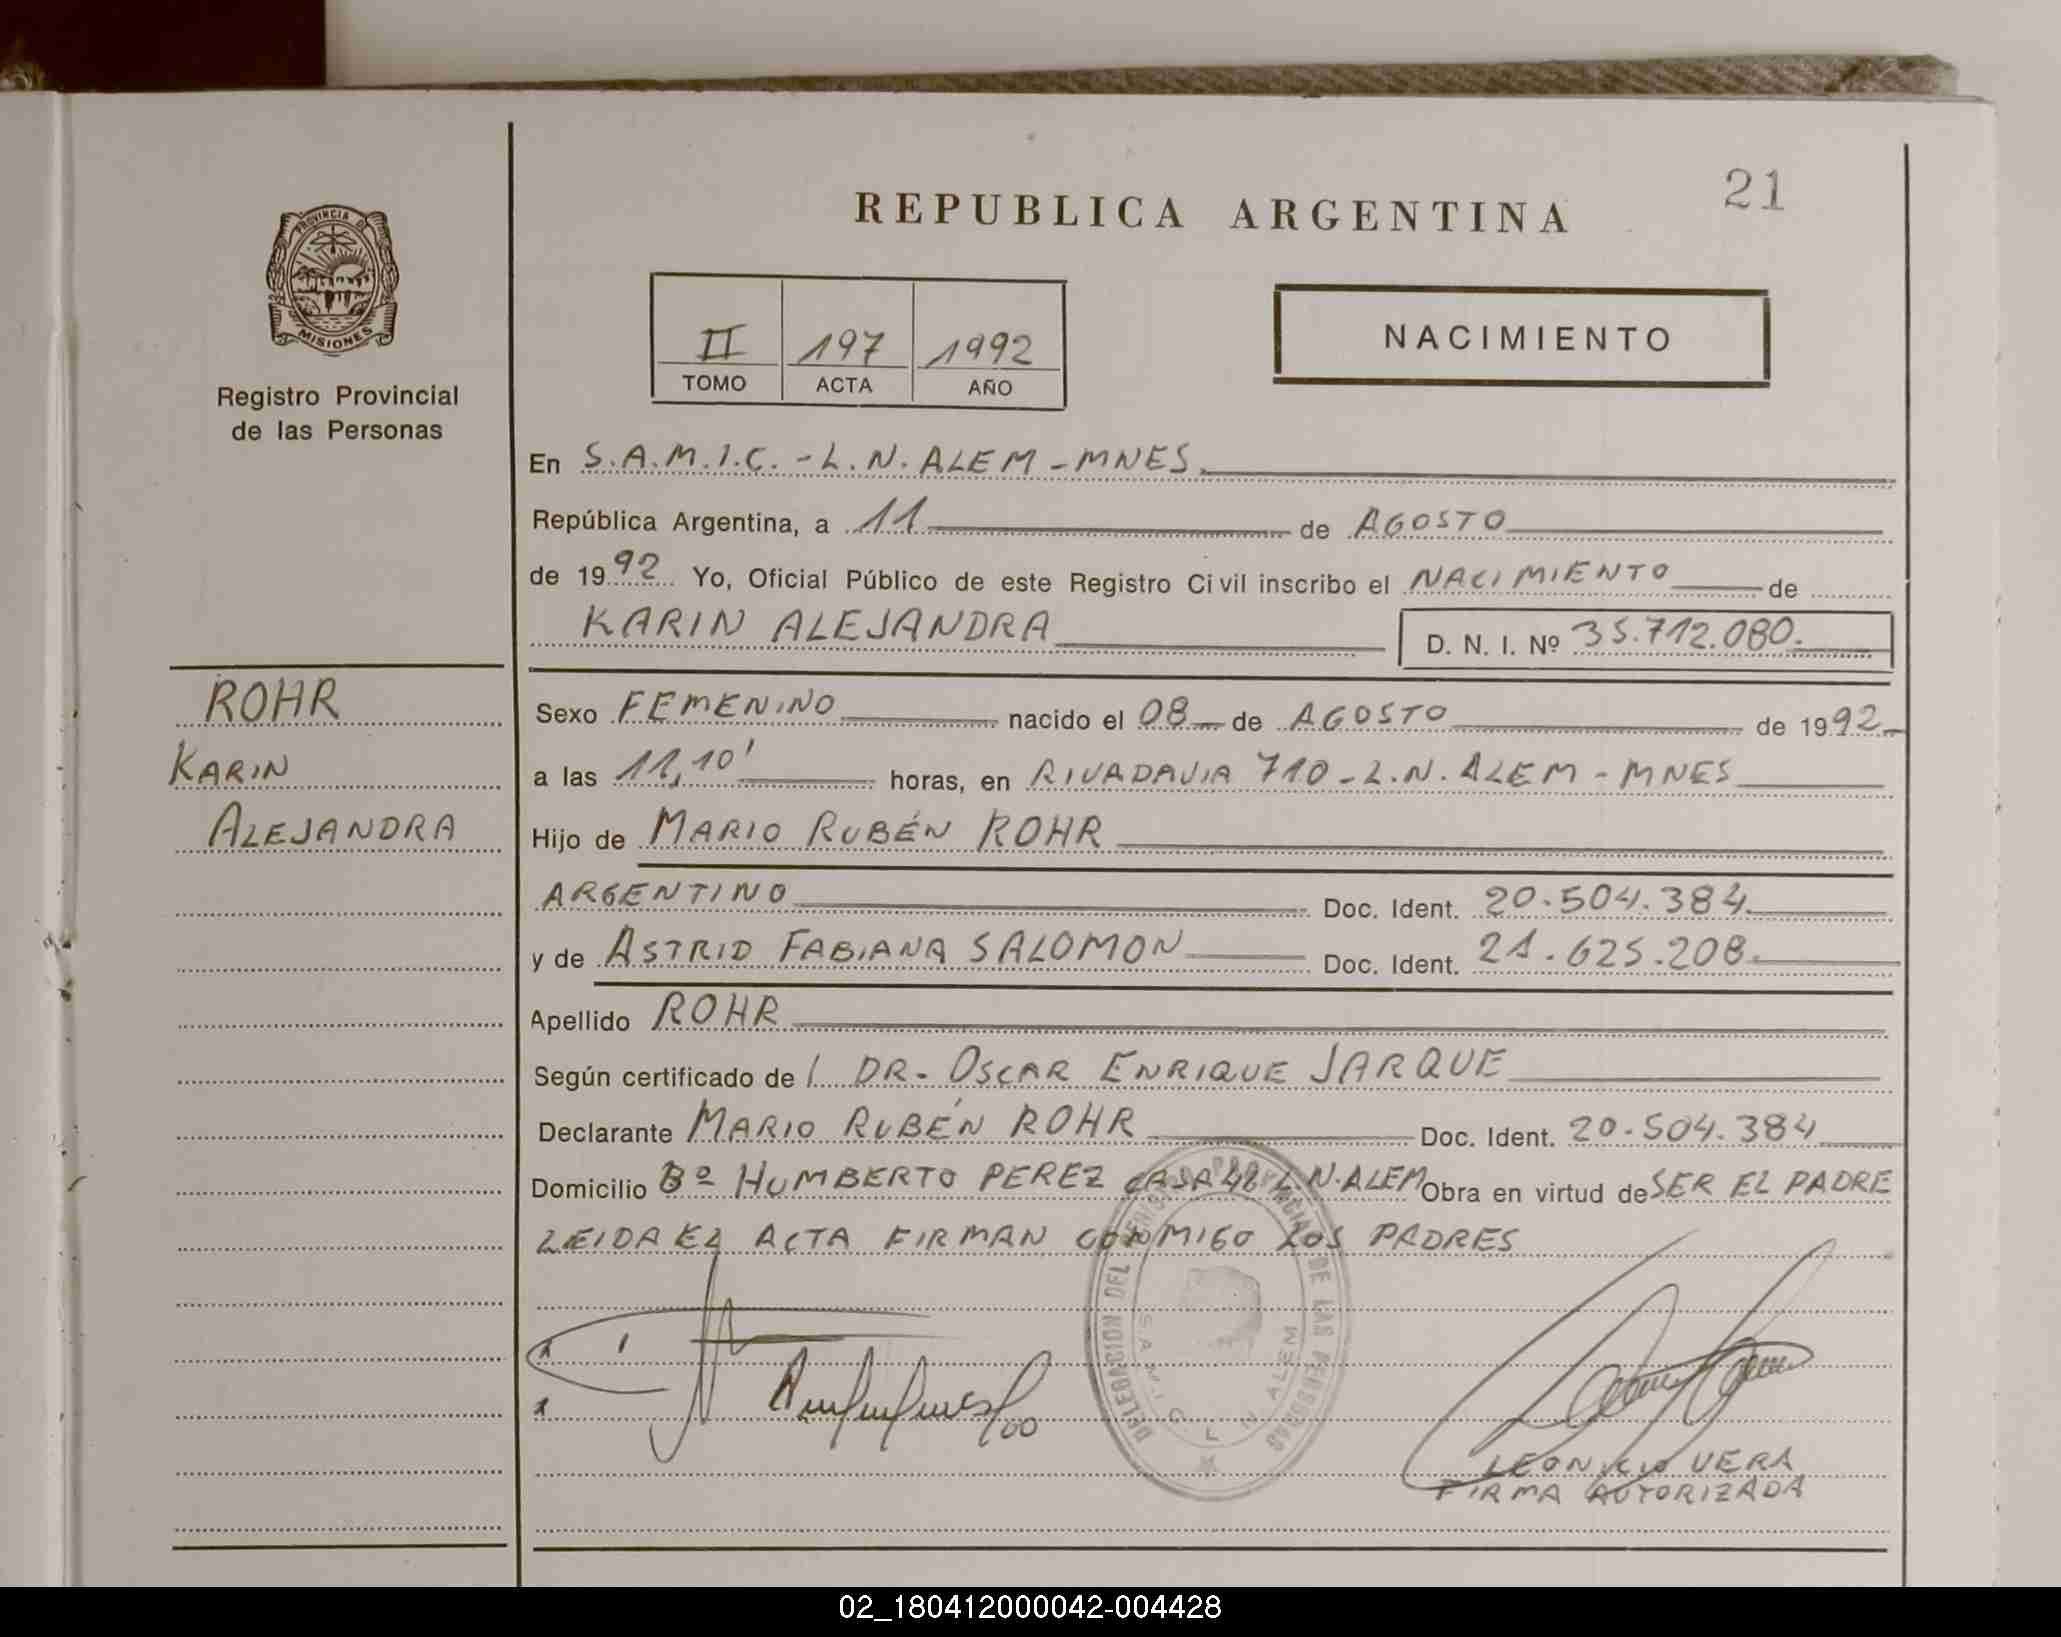 21
REPUBLICA ARGENTINA
PROVINCIA DE
MISIONES
Registro Provincial
de las Personas
II 197 1992
TOMO ACTA AÑO
NACIMIENTO
En S.A.M.I.C. - L.N. ALEM - MNES.
República Argentina, a 11 de AGOSTO
de 1992 Yo, Oficial Público de este Registro Civil inscribo el NACIMIENTO de
KARIN ALEJANDRA D. N. I. Nº 35.712.080.
ROHR
KARIN
ALEJANDRA
Sexo FEMENINO nacido el 08 de AGOSTO de 1992
a las 11,10' horas, en RIVADAVIA 710 - L.N. ALEM - MNES
Hijo de MARIO RUBÉN ROHR
ARGENTINO Doc. Ident. 20.504.384
y de ASTRID FABIANA SALOMON Doc. Ident. 21.625.208.
Apellido ROHR
Según certificado de l DR. OSCAR ENRIQUE JARQUE
Declarante MARIO RUBÉN ROHR Doc. Ident. 20.504.384
Domicilio Bº HUMBERTO PEREZ CASA 42 L.N. ALEM Obra en virtud de SER EL PADRE
LEIDA EL ACTA FIRMAN CONMIGO LOS PADRES
DELEGACION DEL REGISTRO PROVINCIAL DE LAS PERSONAS
S.A.M.I.C. L. N. ALEM
LEONICIO VERA
FIRMA AUTORIZADA
02_180412000042-004428